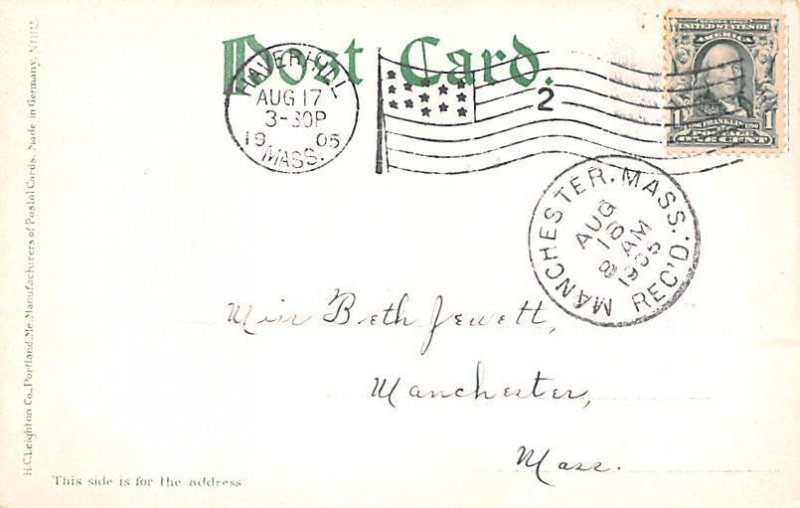 Post Card.
HAVERHILL
AUG 17
3-30P
19 05
MASS.
2
UNITED STATES OF
AMERICA
1 1
ONE CENT
MANCHESTER. MASS.
AUG
18
8 AM
1905
REC'D.
Miss Beth Jewett,
Manchester,
Mass.
This side is for the address
H.C. Leighton Co., Portland, Me. Manufacturers of Postal Cards. Made in Germany.